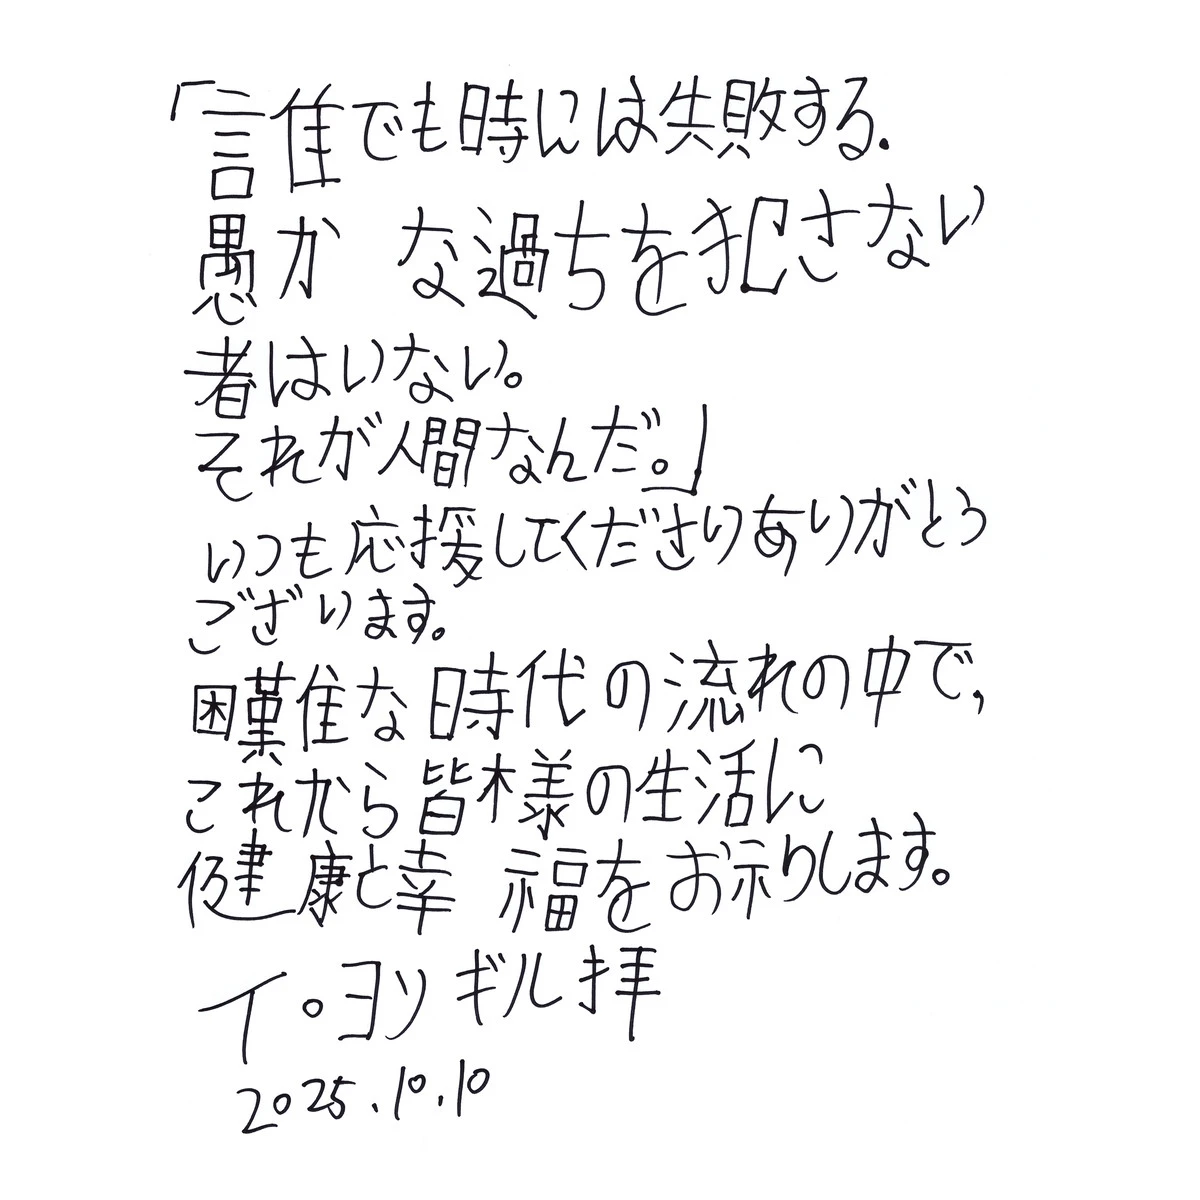 「誰でも時には失敗する.
愚かな過ちを犯さない
者はいない。
それが人間なんだ。」
いつも応援してくださりありがとう
ございます。
困難な時代の流れの中で,
これから皆様の生活に
健康と幸福をお示りします。
イ。ヨンギル拝
2025.10.10